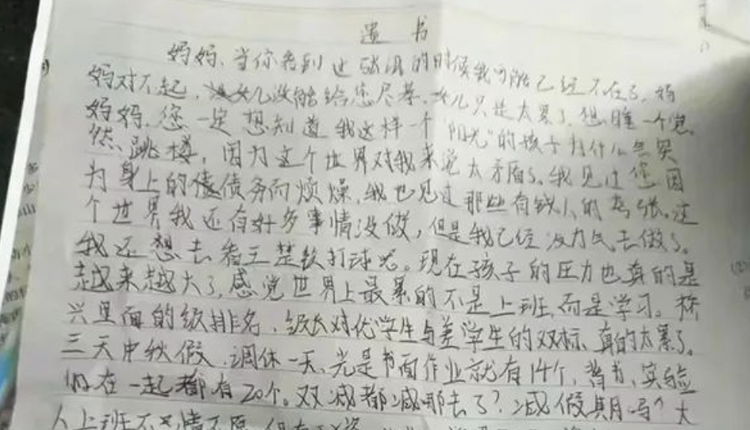 遗书
妈妈、当你看到这张纸的时候我可能已经不在了，妈
妈对不起，女儿没能给您尽孝，女儿只是太累了想睡一个觉
妈妈，您一定想知道我这样一个“阳光”的孩子为什么会突
然跳楼，因为这个世界对我来说太矛盾了。我见过您因
为身上的债务而烦燥，我也见过那些有钱人的嚣张。这
个世界我还有好多事情没做，但是我已经没力气去做了。
我还想去看王楚钦打球呢。现在孩子的压力也真的是
越来越大了，感觉世界上最累的不是上班，而是学习。
兴里面的级排名，级长对优学生与差学生的双标，真的太累了。
三天中秋假，调休一天，光是书面作业就有14个，背书、实验
在一起都有20个。双减都减哪去了？减假期吗？大
人上班不